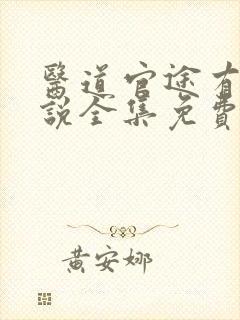 醫道官途有
說全集免費
黃安娜